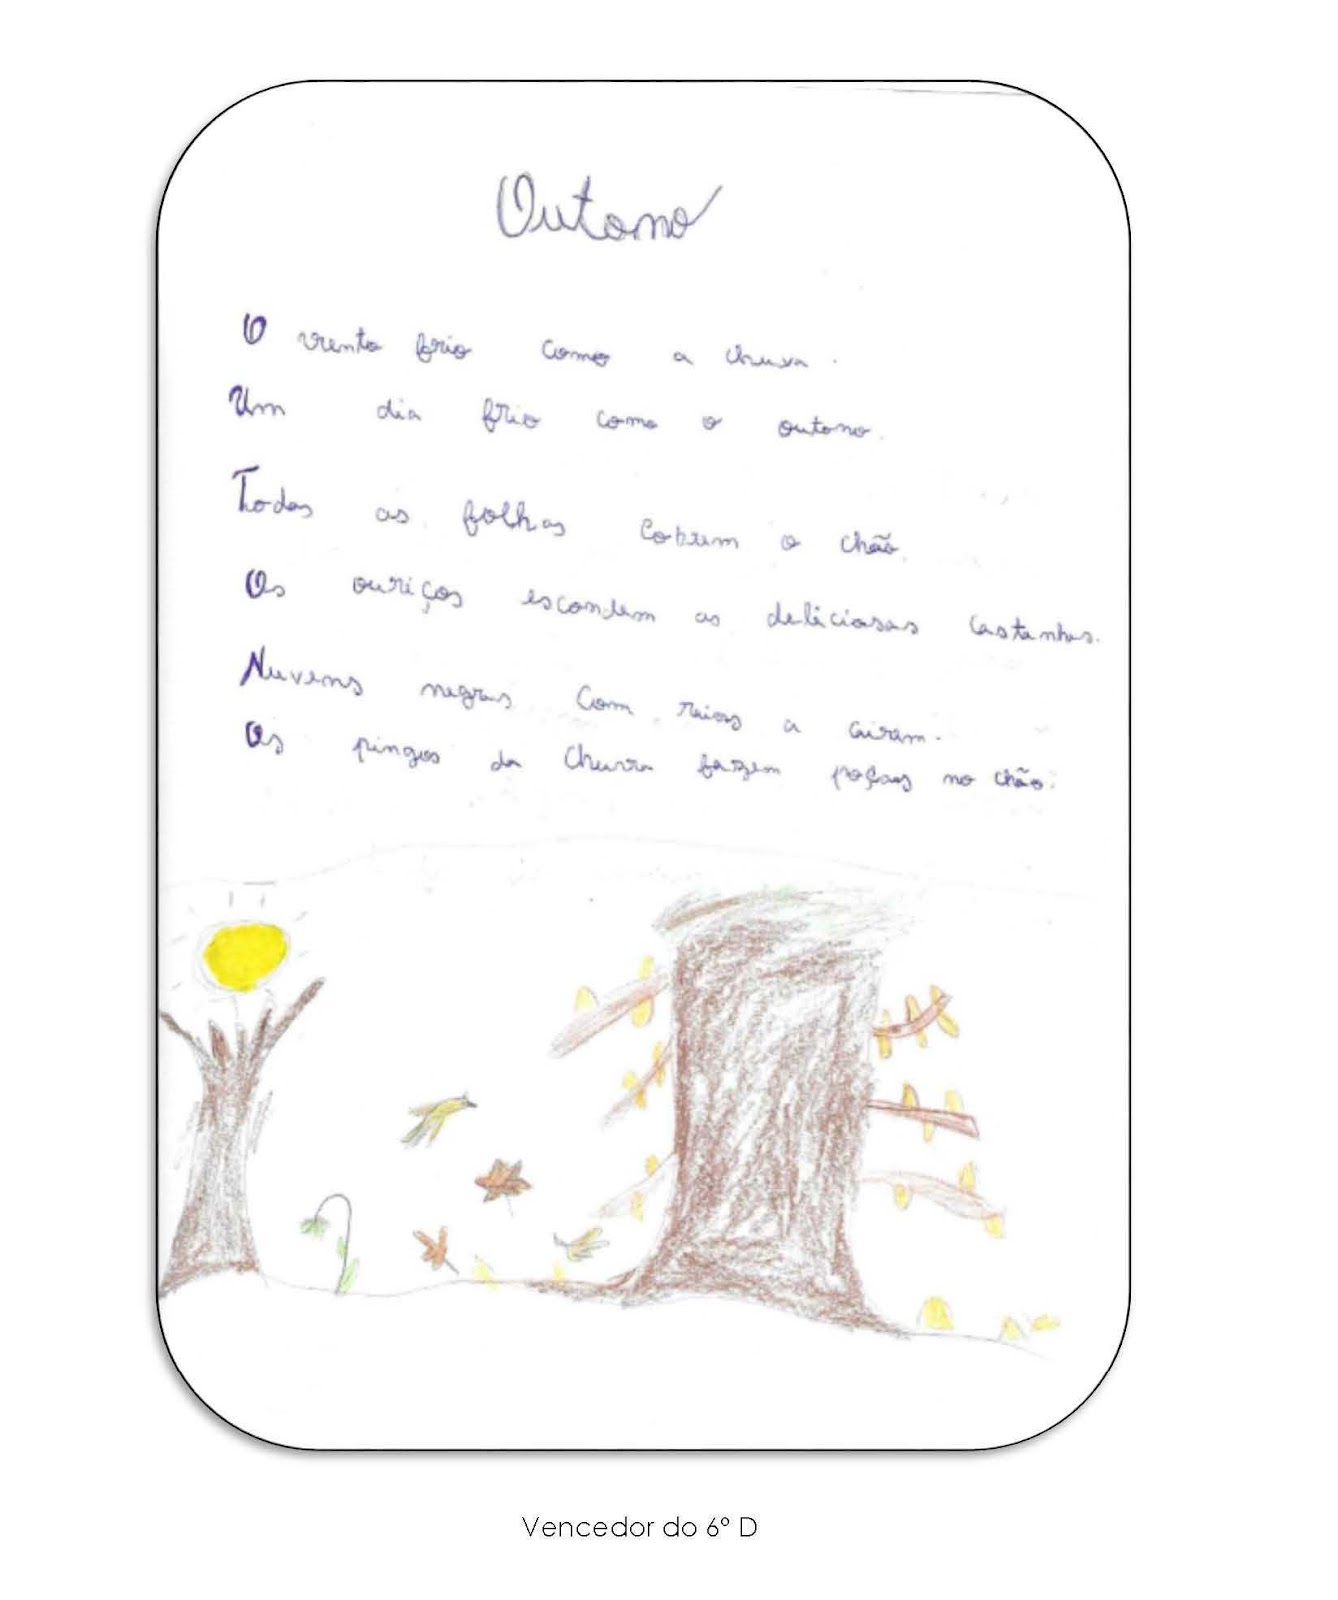 Outono
O vento frio como a chuva.
Um dia frio como o outono.
Todas as folhas cobrem o chão.
Os ouriços escondem as deliciosas castanhas.
Nuvens negras com raios a cairam.
Os pingos da chuva fazem poças no chão.
Vencedor do 6º D